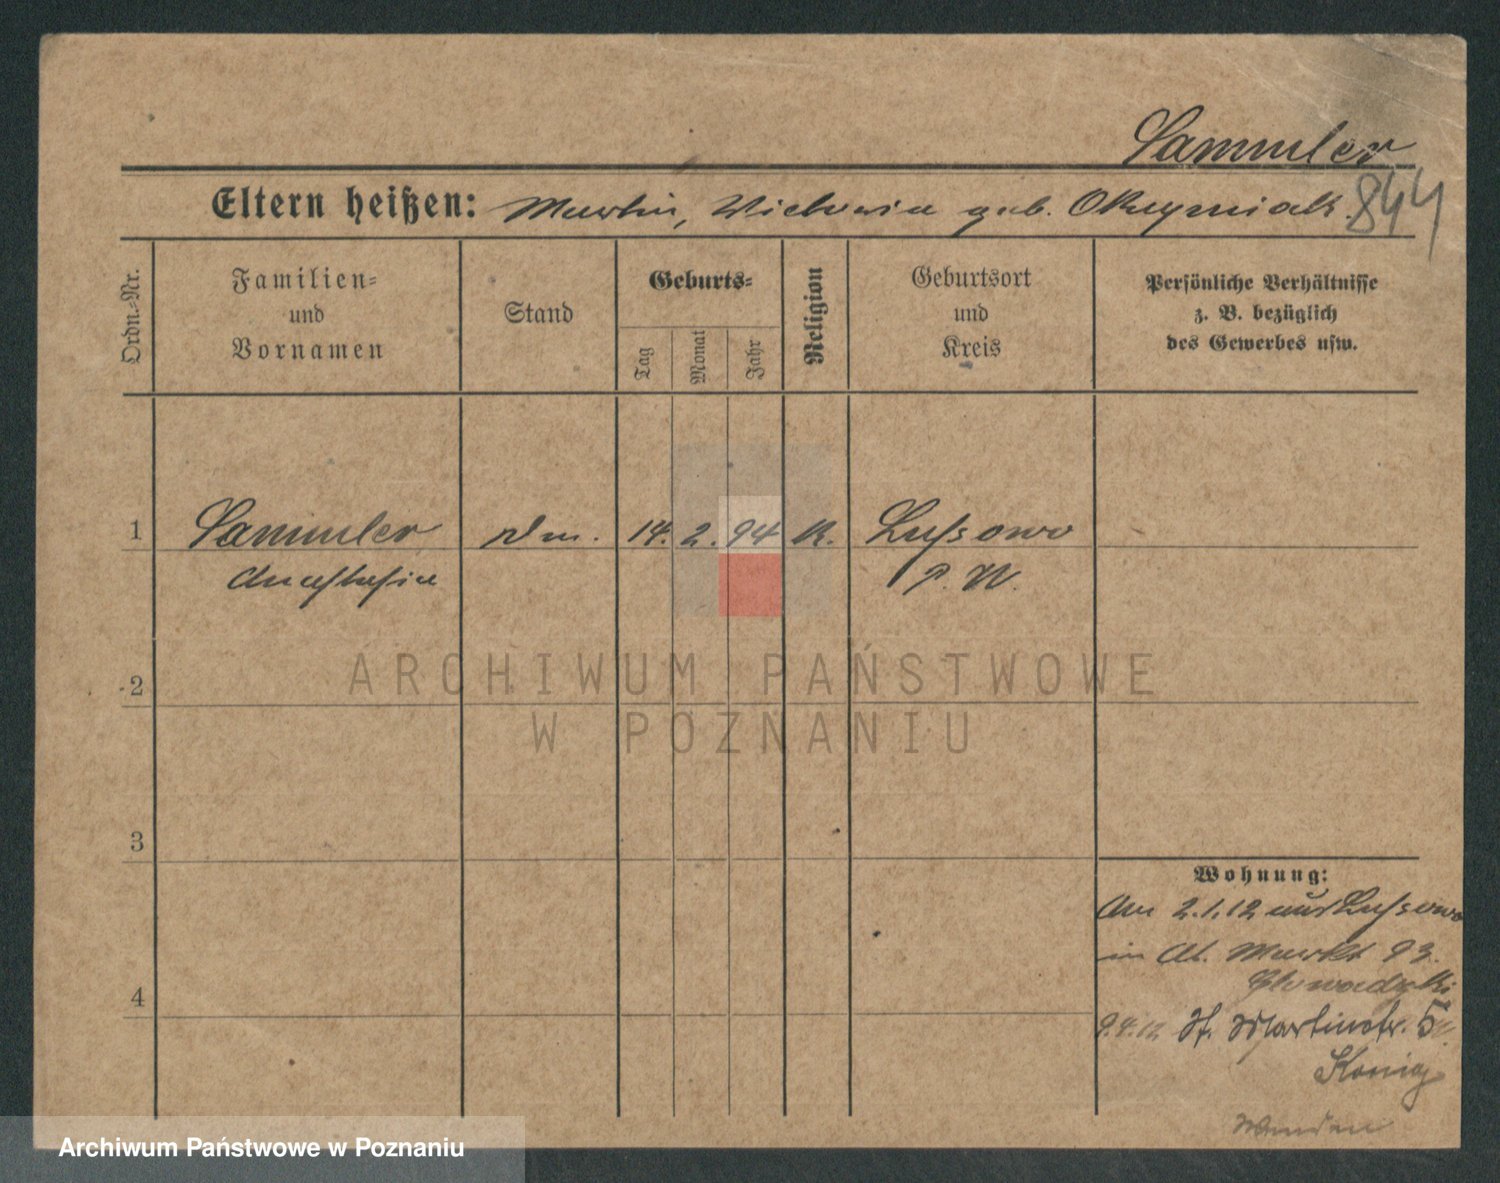 Sammler
844
Eltern heißen: Martin, Victoria geb.
Ordn.-Nr.
Familien-
und
Vornamen
Stand
Geburts-
Tag
Monat
Jahr
Religion
Geburtsort
und
Kreis
Persönliche Verhältnisse
z. B. bezüglich
des Gewerbes usw.
1 Sammler Dm. 14. 2. 94 K. Lussowo
Anastasia P. W.
2
ARCHIWUM PAŃSTWOWE
W POZNANIU
3
Wohnung:
Am 2.1.12 aus Lussowo
in At. Markt 93.
4
9.4.12 St. Martinstr.
König
Archiwum Państwowe w Poznaniu